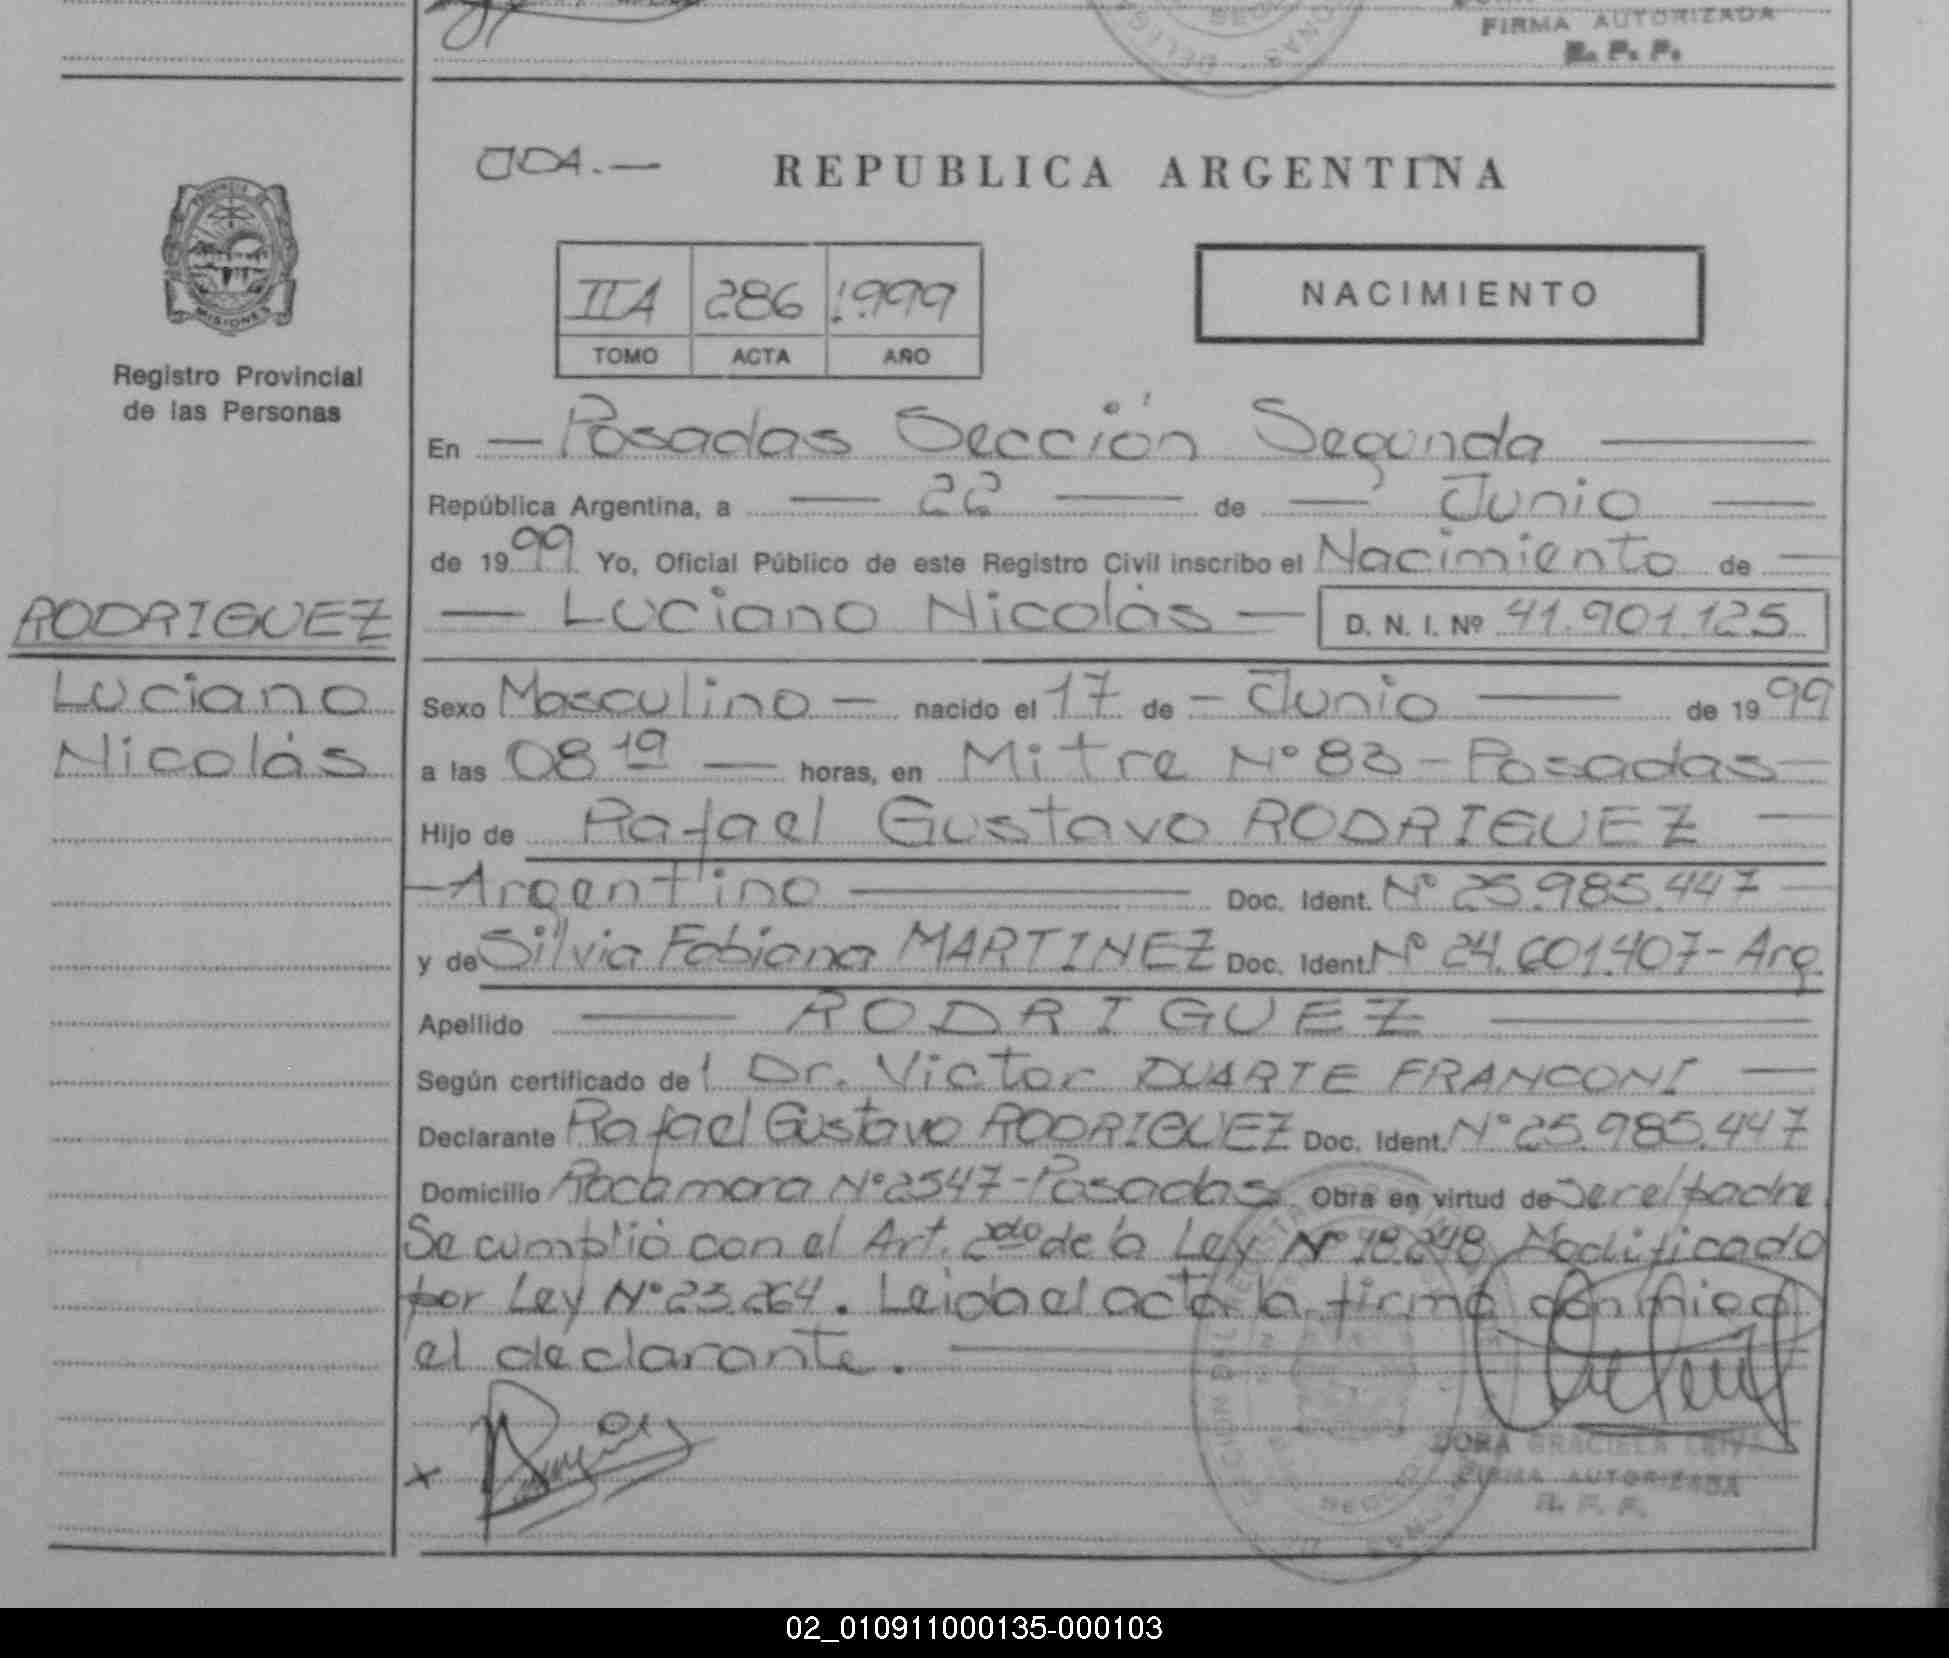 FIRMA AUTORIZADA
R. P. P.
REPUBLICA ARGENTINA
PROVINCIA
MISIONES
IIA 286 1.999
TOMO ACTA AÑO
NACIMIENTO
Registro Provincial
de las Personas
En — Posadas Sección Segunda —
República Argentina, a — 22 — de — Junio —
de 1999 Yo, Oficial Público de este Registro Civil inscribo el Nacimiento de —
— Luciano Nicolás — D. N. I. Nº 41.901.125
RODRIGUEZ
Luciano
Nicolás
Sexo Masculino — nacido el 17 de — Junio — de 1999
a las 08 19 — horas, en Mitre Nº 83 - Posadas —
Hijo de Rafael Gustavo RODRIGUEZ —
— Argentino — Doc. Ident. Nº 25.985.447 —
y de Silvia Fabiana MARTINEZ Doc. Ident. Nº 24.601.407 - Arg.
Apellido — RODRIGUEZ —
Según certificado del Dr. Victor DUARTE FRANCONI —
Declarante Rafael Gustavo RODRIGUEZ Doc. Ident. Nº 25.985.447
Domicilio Rocamora Nº 2547 - Posadas Obra en virtud de ser el padre
Se cumplió con el Art. 2do de la Ley Nº 18.248 Modificado
por Ley Nº 23.264. Leida el acta la firma conmigo
el declarante. —
x
DORA GRACIELA
FIRMA AUTORIZADA
R. P. P.
02_010911000135-000103